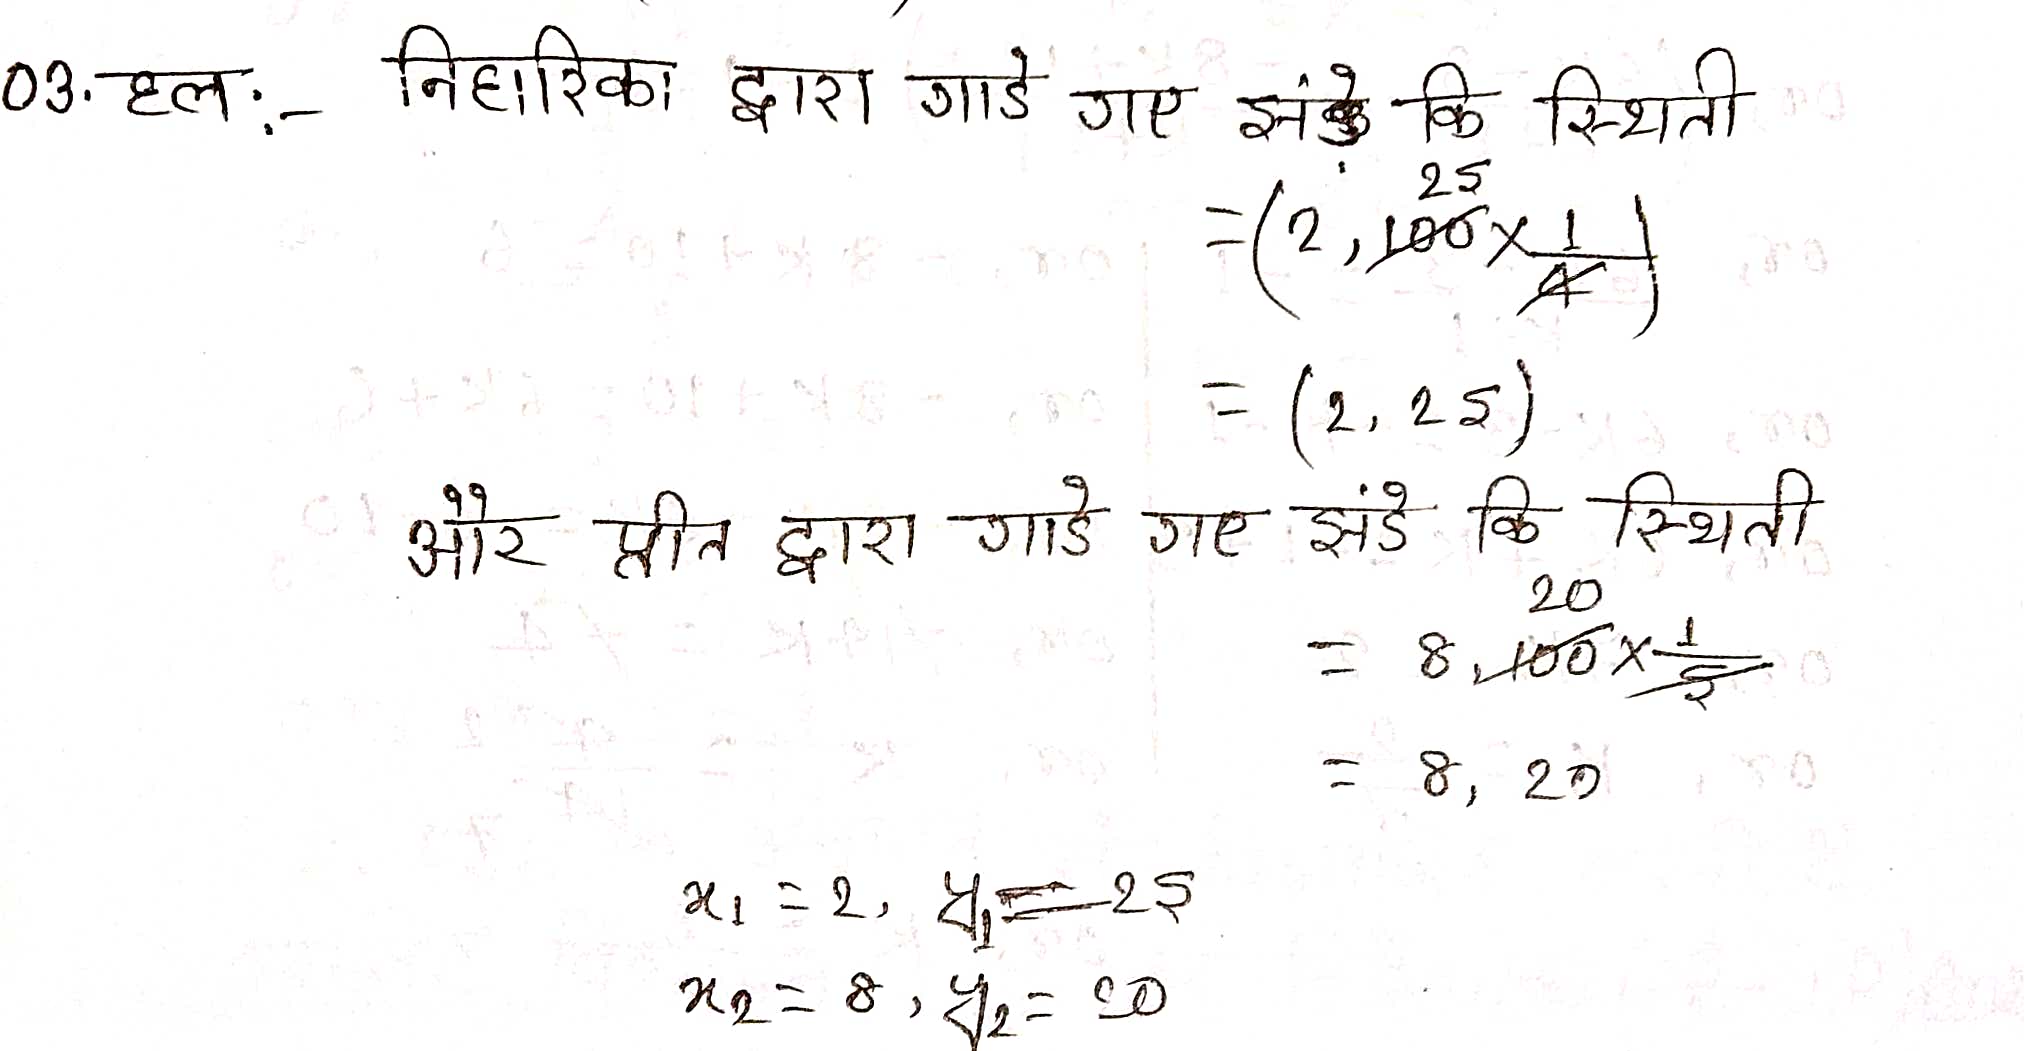 03. हल:- निहारिका द्वारा गाडे गए झंडे कि स्थिती
25
= (2, 100 × 1/4)
= (2, 25)
और प्रीत द्वारा गाडे गए झंडे कि स्थिती
20
= 8, 100 × 1/5
= 8, 20
x₁ = 2, y₁ = 25
x₂ = 8, y₂ = 20